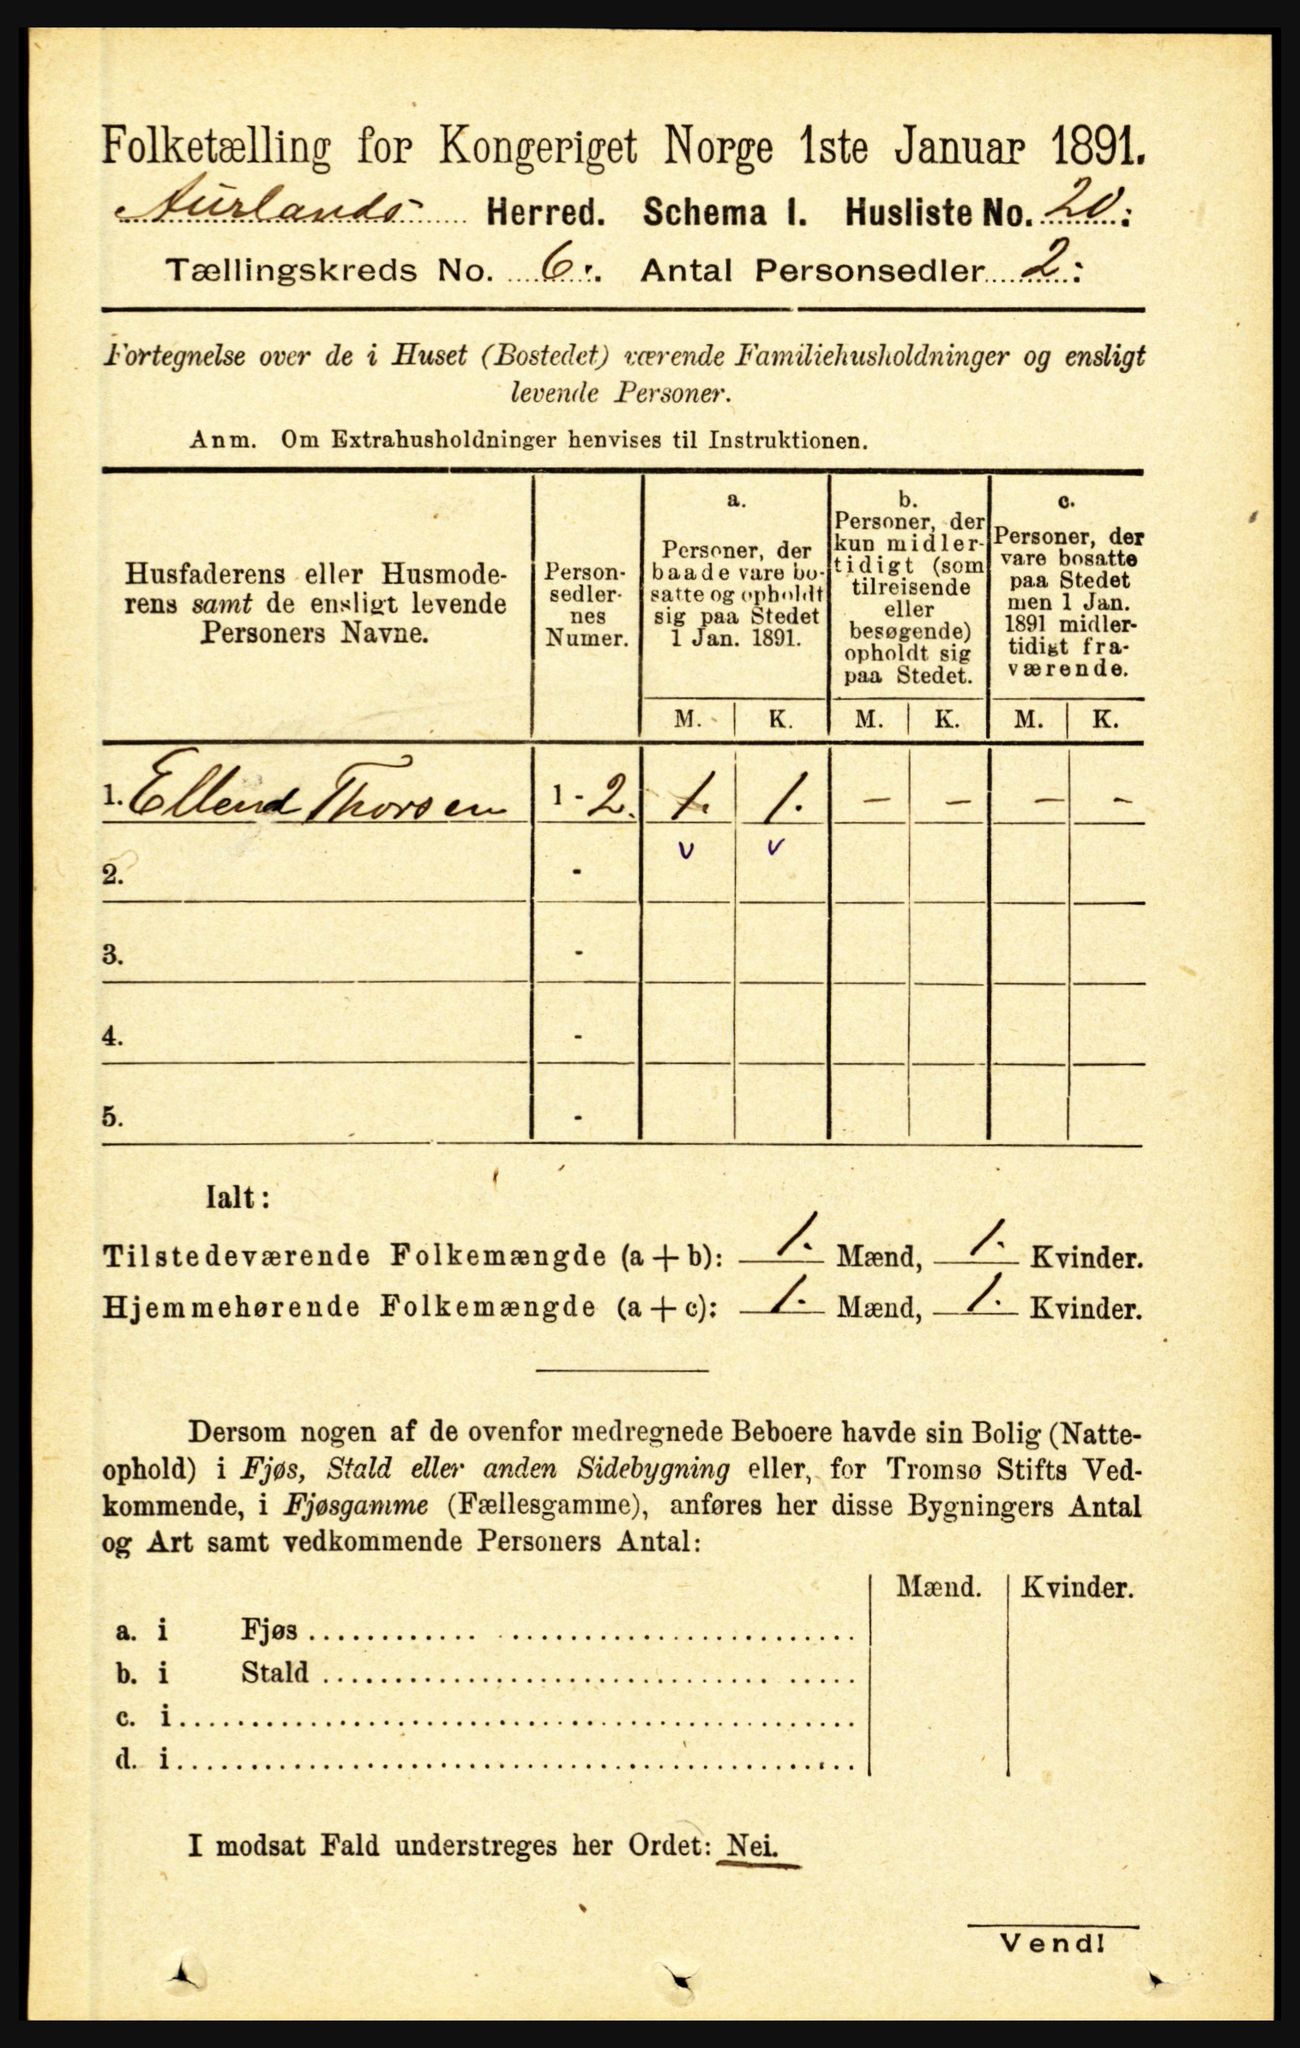 Folketælling for Kongeriget Norge 1ste Januar 1891.
Aurlands Herred. Schema I. Husliste No. 20:
Tællingskreds No. 6. Antal Personsedler 2:
Fortegnelse over de i Huset (Bostedet) værende Familiehusholdninger og ensligt
levende Personer.
Anm. Om Extrahusholdninger henvises til Instruktionen.
Husfaderens eller Husmode-
rens samt de ensligt levende
Personers Navne.
Person-
sedler-
nes
Numer.
a.
Personer, der
baade vare bo-
satte og opholdt
sig paa Stedet
1 Jan. 1891.
b.
Personer, der
kun midler-
tidigt (som
tilreisende
eller
besøgende)
opholdt sig
paa Stedet.
c.
Personer, der
vare bosatte
paa Stedet
men 1 Jan.
1891 midler-
tidigt fra-
værende.
M. K. M. K. M. K.
1. Ellend Thorsen 1 - 2. 1. 1. - - - -
v v
2. -
3. -
4. -
5. -
Ialt:
Tilstedeværende Folkemængde (a + b): 1. Mænd, 1. Kvinder.
Hjemmehørende Folkemængde (a + c): 1. Mænd, 1. Kvinder.
Dersom nogen af de ovenfor medregnede Beboere havde sin Bolig (Natte-
ophold) i Fjøs, Stald eller anden Sidebygning eller, for Tromsø Stifts Ved-
kommende, i Fjøsgamme (Fællesgamme), anføres her disse Bygningers Antal
og Art samt vedkommende Personers Antal:
Mænd. Kvinder.
a. i Fjøs
b. i Stald
c. i
d. i
I modsat Fald understreges her Ordet: Nei.
Vend!